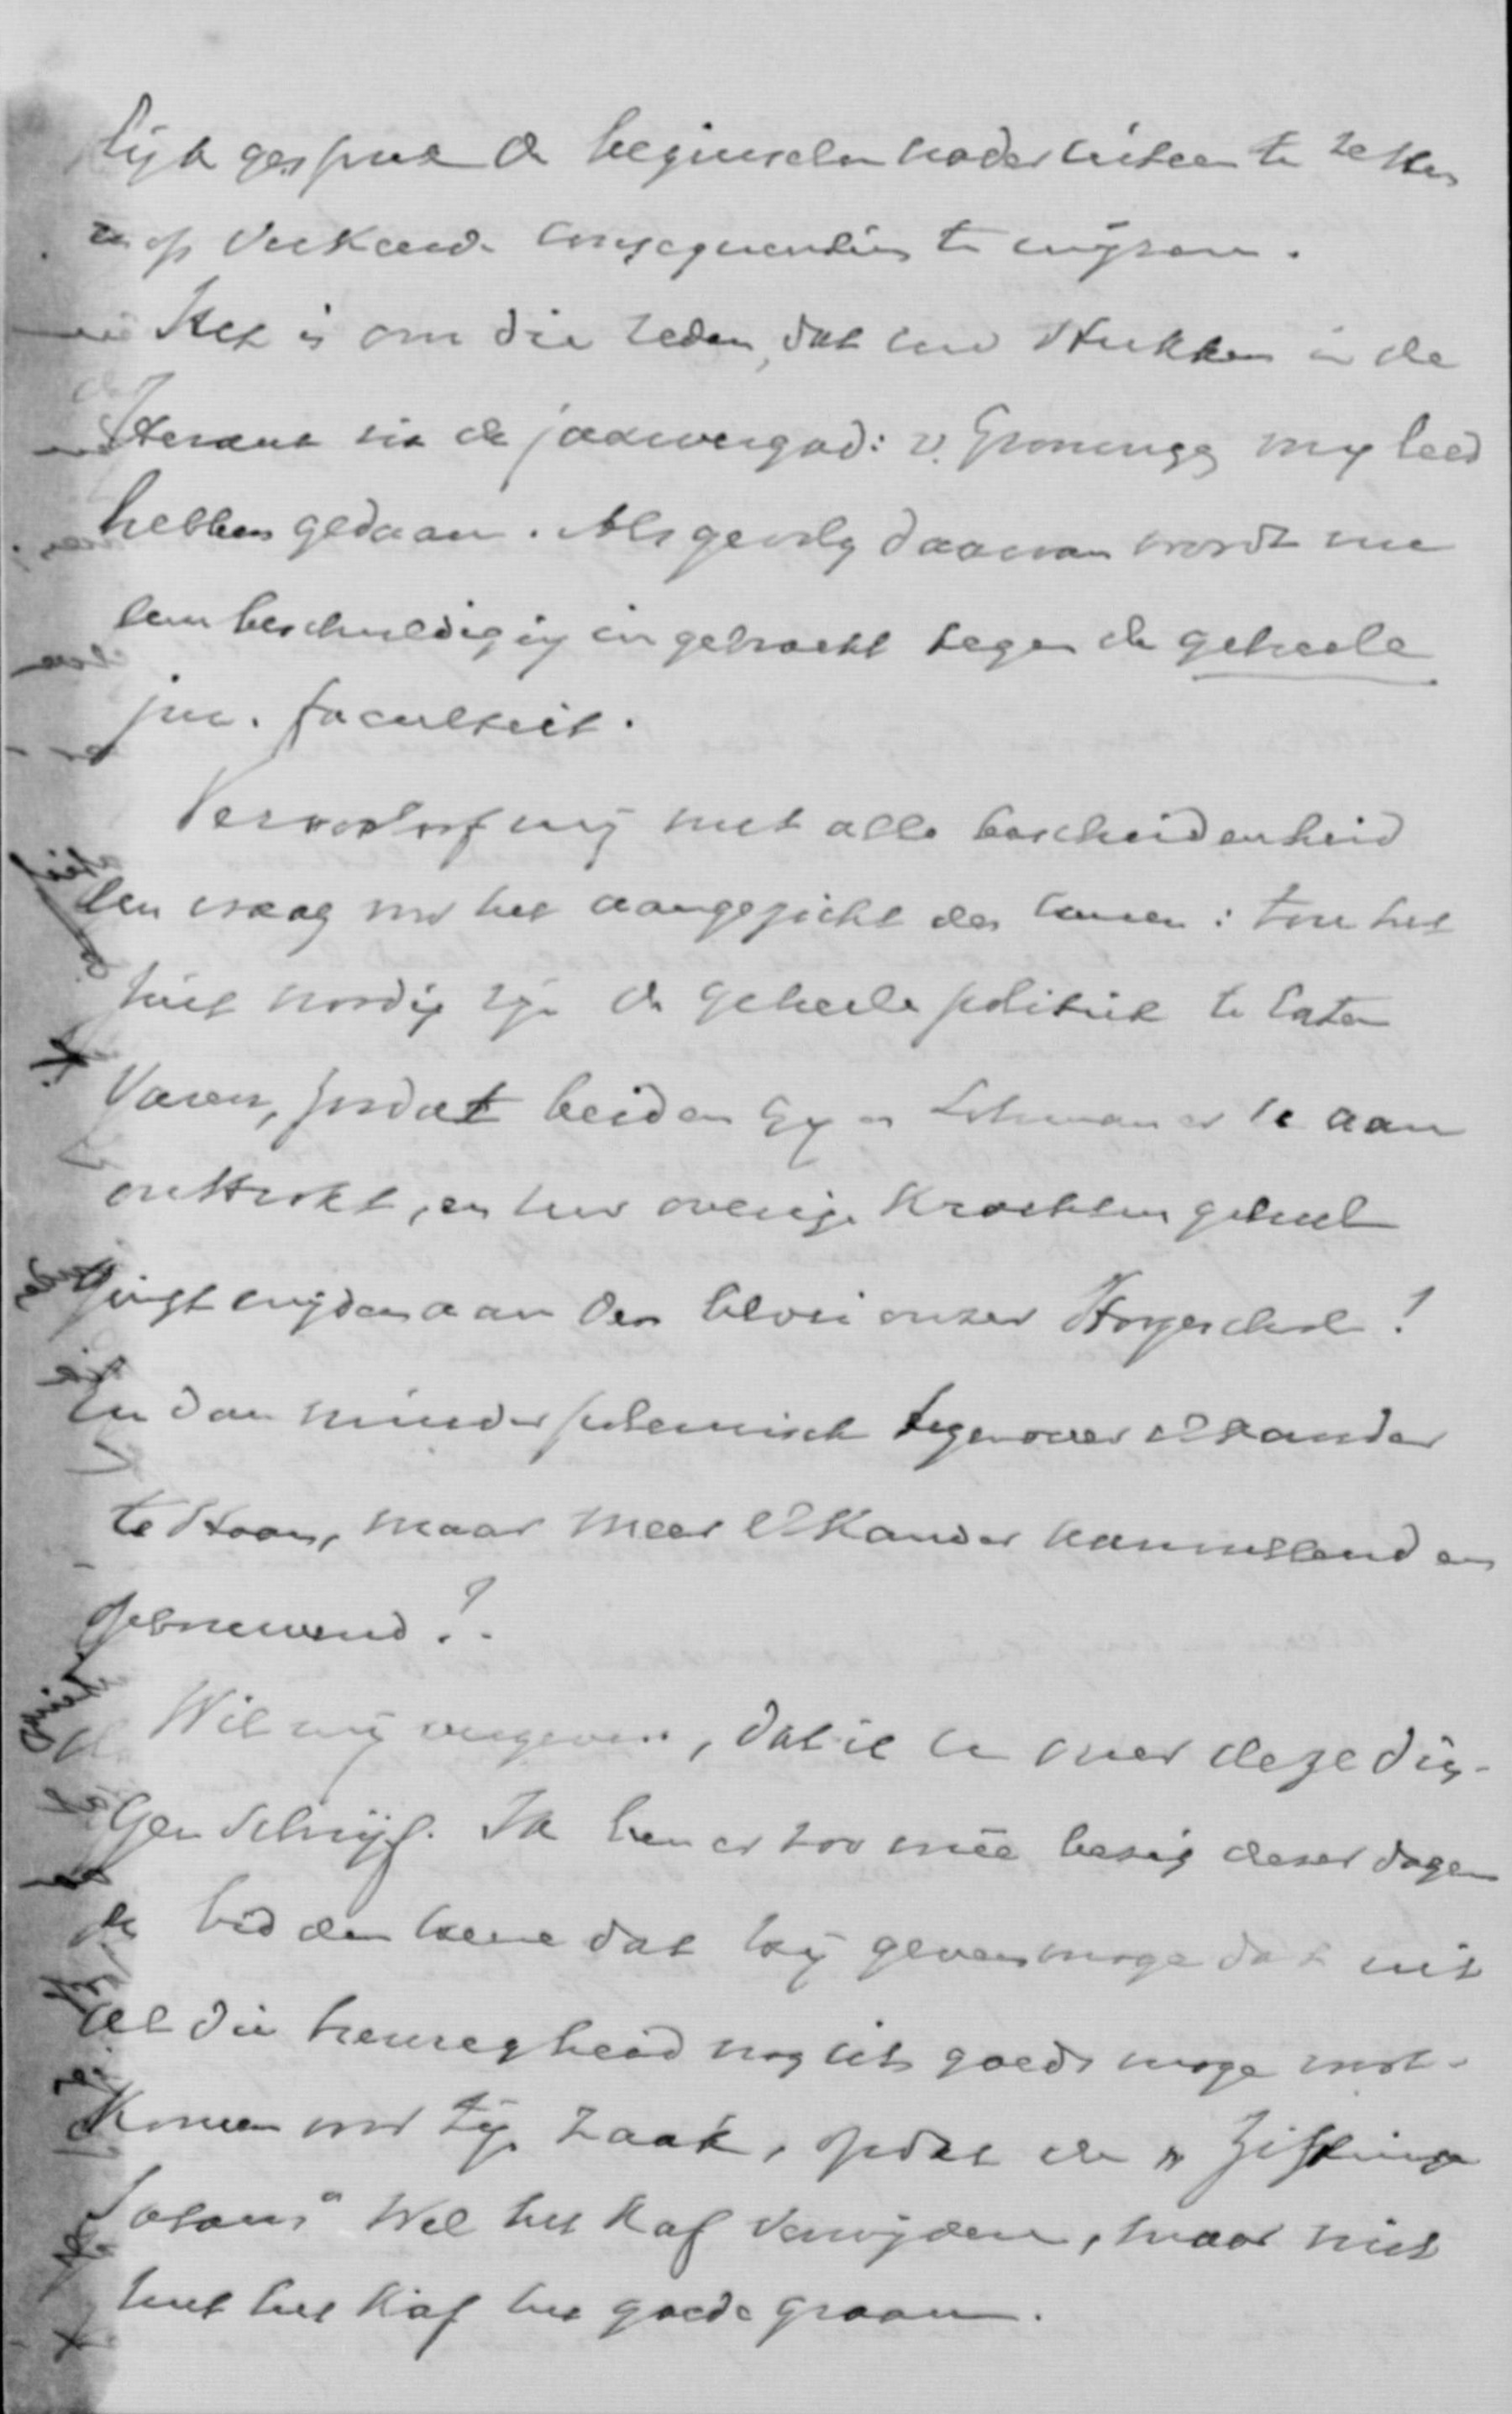 lijk gesprek de beginselen nader uiteen te zetten
en op verkeerde consequentiën te wijzen.
Het is om die reden, dat uw stukken in de
Heraut na de jaarvergad: v. Groningen mij leed
hebben gedaan. Als gevolg daarvan wordt nu
een beschuldiging ingebracht tegen de geheele
jur. faculteit.
Veroorloof mij met alle bescheidenheid
een vraag voor het aangezicht des Heeren: zou het
niet noodig zijn de geheele politiek te laten
varen, zoodat beiden Gij en Lohman er U aan
onttrekt, en uw overige krachten geheel
gingt wijden aan den bloei onzer Hoogeschool!
En dan minder polemisch tegenover elkander
te staan, maar meer elkander aanvullend en
opbouwend?
Wil mij vergeven, dat ik U over deze din-
gen schrijf. Ik ben er zoo meê bezig dezer dagen
Ik bid den Heere dat hij geven moge dat uit
al die treurigheid nog iets goeds moge voort-
komen voor zijn zaak, opdat de "zifting
Satans" wel het kaf verwijdere, maar niet
met het kaf het goede graan.